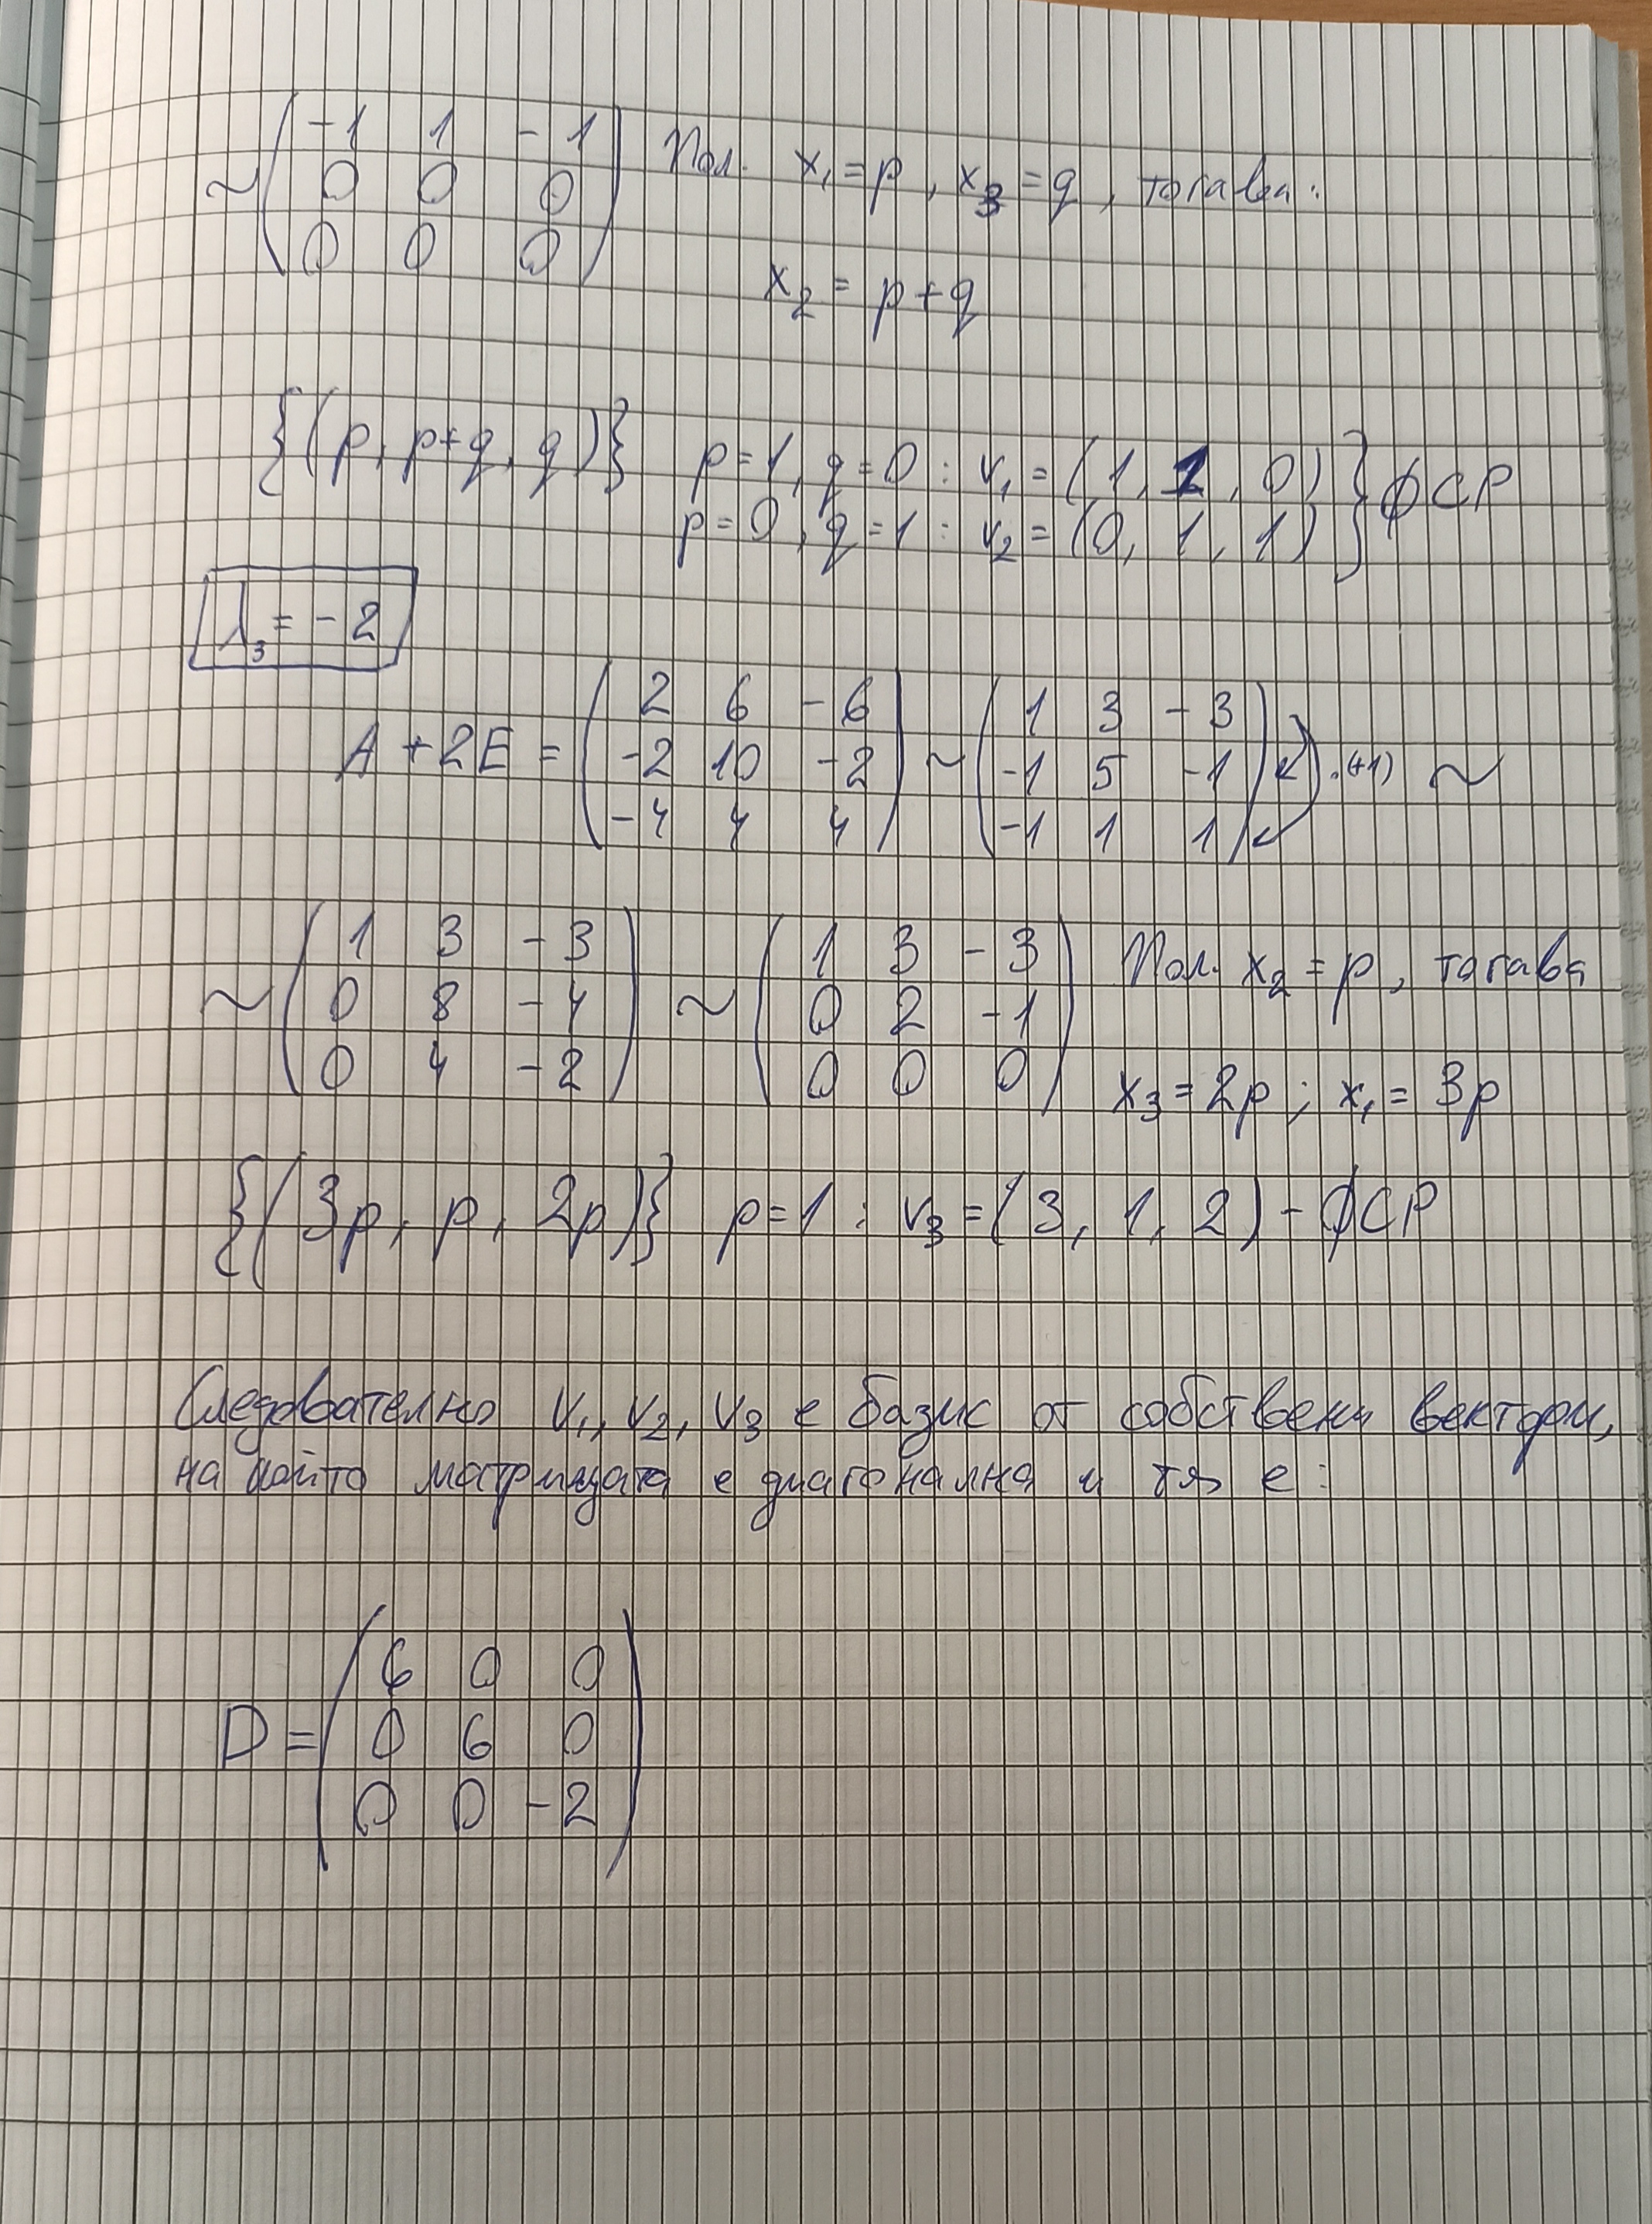 ~ (-1 1 -1
0 0 0
0 0 0) Пол. x₁ = p, x₃ = q, тогава:
x₂ = p+q
{(p, p+q, q)} p=1, q=0 : v₁ = (1, 1, 0)
p=0, q=1 : v₂ = (0, 1, 1) } ФСР
λ₃ = -2
A + 2E = (2 6 -6
-2 10 -2
-4 4 4) ~ (1 3 -3
-1 5 -1
-1 1 1) .(+1) ~
~ (1 3 -3
0 8 -4
0 4 -2) ~ (1 3 -3
0 2 -1
0 0 0) Пол. x₂ = p, тогава
x₃ = 2p ; x₁ = 3p
{(3p, p, 2p)} p=1 : v₃ = (3, 1, 2) - ФСР
Следователно v₁, v₂, v₃ е базис от собствени вектори,
на който матрицата е диагонална и тя е:
D = (6 0 0
0 6 0
0 0 -2)